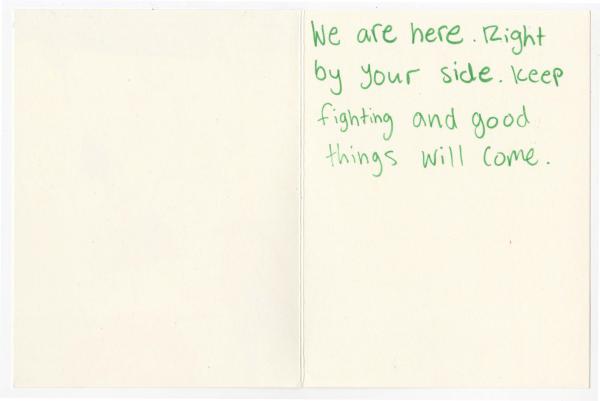 We are here. Right
by your side. Keep
fighting and good
things will come.